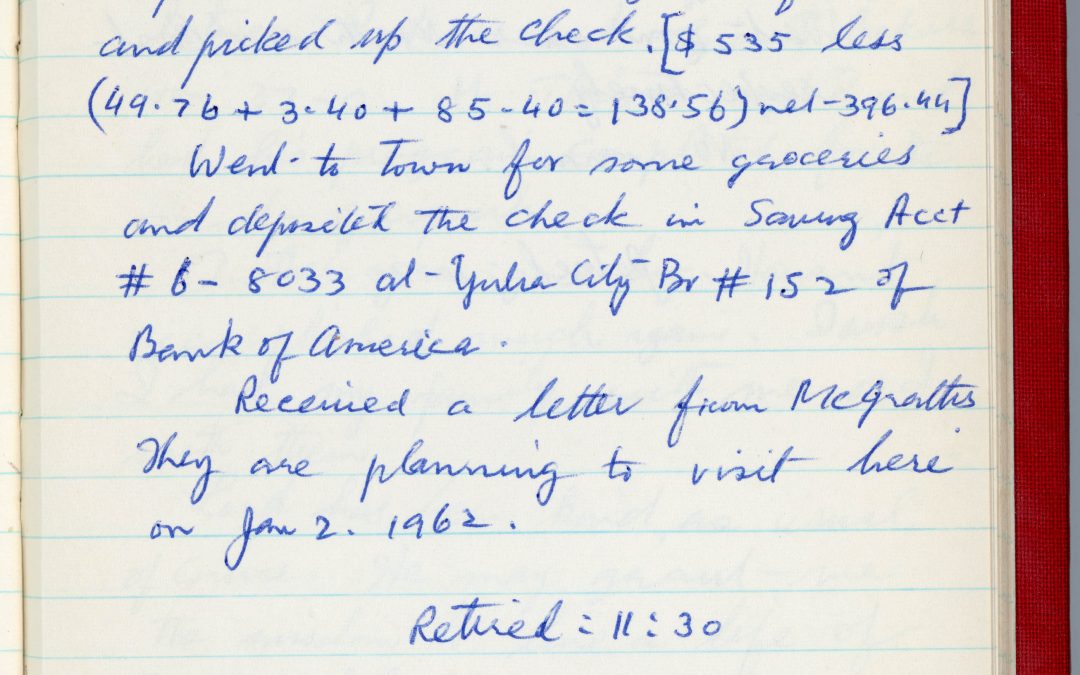 and picked up the check. [$ 535 less
(49.76 + 3.40 + 85.40 = 138.56) net - 396.44]
Went to Town for some groceries
and deposited the check in Saving Acct
# 6 - 8033 at Yuba City Br # 152 of
Bank of America.
Received a letter from McGraths
They are planning to visit here
on Jan 2. 1962.
Retired : 11:30